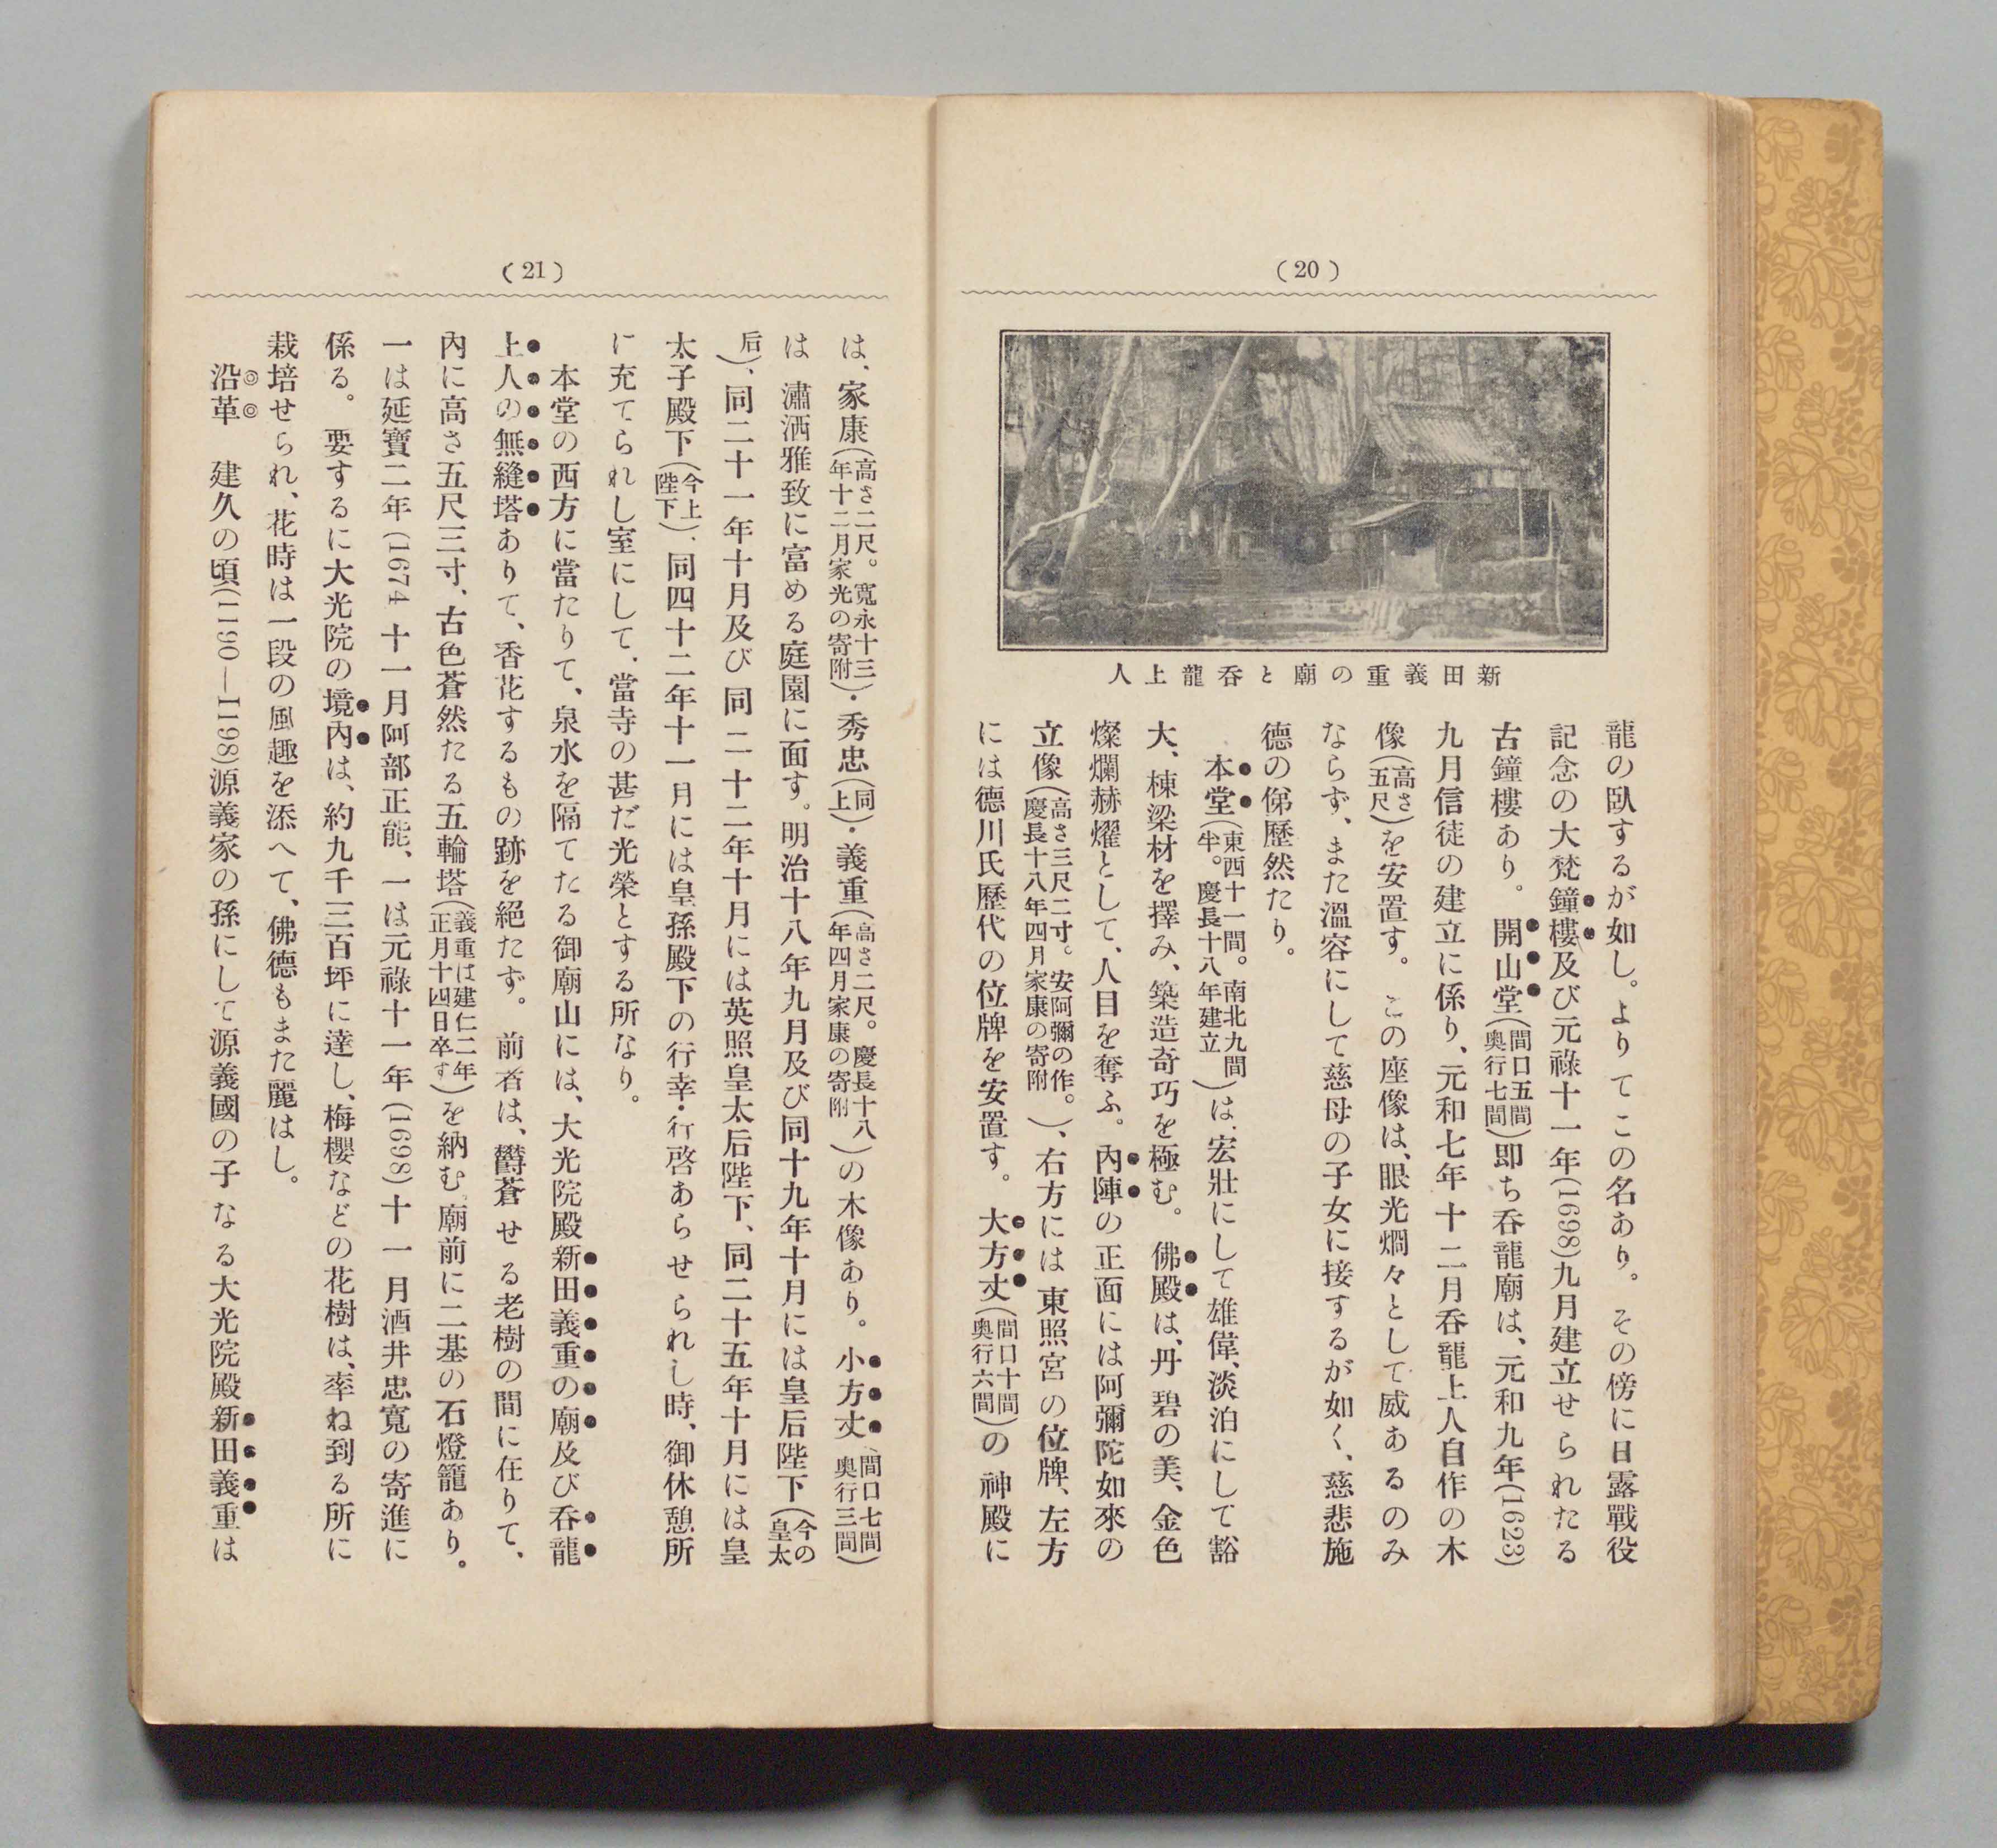 (20)
新田義重の廟と呑龍上人
龍の臥するが如し。よりてこの名あり。その傍に日露戰役
記念の大梵鐘樓及び元祿十一年(1698)九月建立せられたる
古鐘樓あり。開山堂(間口五間奥行七間)即ち呑龍廟は、元和九年(1623)
九月信徒の建立に係り、元和七年十二月呑龍上人自作の木
像(高さ五尺)を安置す。この座像は、眼光烱々として威あるのみ
ならず、また溫容にして慈母の子女に接するが如く、慈悲施
德の俤歷然たり。
本堂(東西十一間。南北九間半。慶長十八年建立)は、宏壯にして雄偉、淡泊にして豁
大、棟梁材を擇み、築造奇巧を極む。佛殿は、丹碧の美、金色
燦爛赫燿として、人目を奪ふ。內陣の正面には阿彌陀如來の
立像(高さ三尺二寸。安阿彌の作。慶長十八年四月家康の寄附)、右方には東照宮の位牌、左方
には德川氏歷代の位牌を安置す。大方丈(間口十間奥行六間)の神殿に
(21)
は、家康(高さ二尺。寬永十三年十二月家光の寄附)・秀忠(同上)・義重(高さ二尺。慶長十八年四月家康の寄附)の木像あり。小方丈(間口七間奥行三間)
は瀟洒雅致に富める庭園に面す。明治十八年九月及び同十九年十月には皇后陛下(今の皇太
后)、同二十一年十月及び同二十二年十月には英照皇太后陛下、同二十五年十月には皇
太子殿下(今上陛下)、同四十二年十一月には皇孫殿下の行幸・行啓あらせられし時、御休憩所
に充てられし室にして、當寺の甚だ光榮とする所なり。
本堂の西方に當たりて、泉水を隔てたる御廟山には、大光院殿新田義重の廟及び呑龍
上人の無縫塔ありて、香花するもの跡を絕たず。前者は、欝蒼せる老樹の間に在りて、
內に高さ五尺三寸、古色蒼然たる五輪塔(義重は建仁二年正月十四日卒す)を納む。廟前に二基の石燈籠あり。
一は延寶二年(1674 十一月阿部正能、一は元祿十一年(1698)十一月酒井忠寬の寄進に
係る。要するに大光院の境內は、約九千三百坪に達し、梅櫻などの花樹は、率ね到る所に
栽培せられ、花時は一段の風趣を添へて、佛德もまた麗はし。
沿革 建久の頃(1190—1198)源義家の孫にして源義國の子なる大光院殿新田義重は